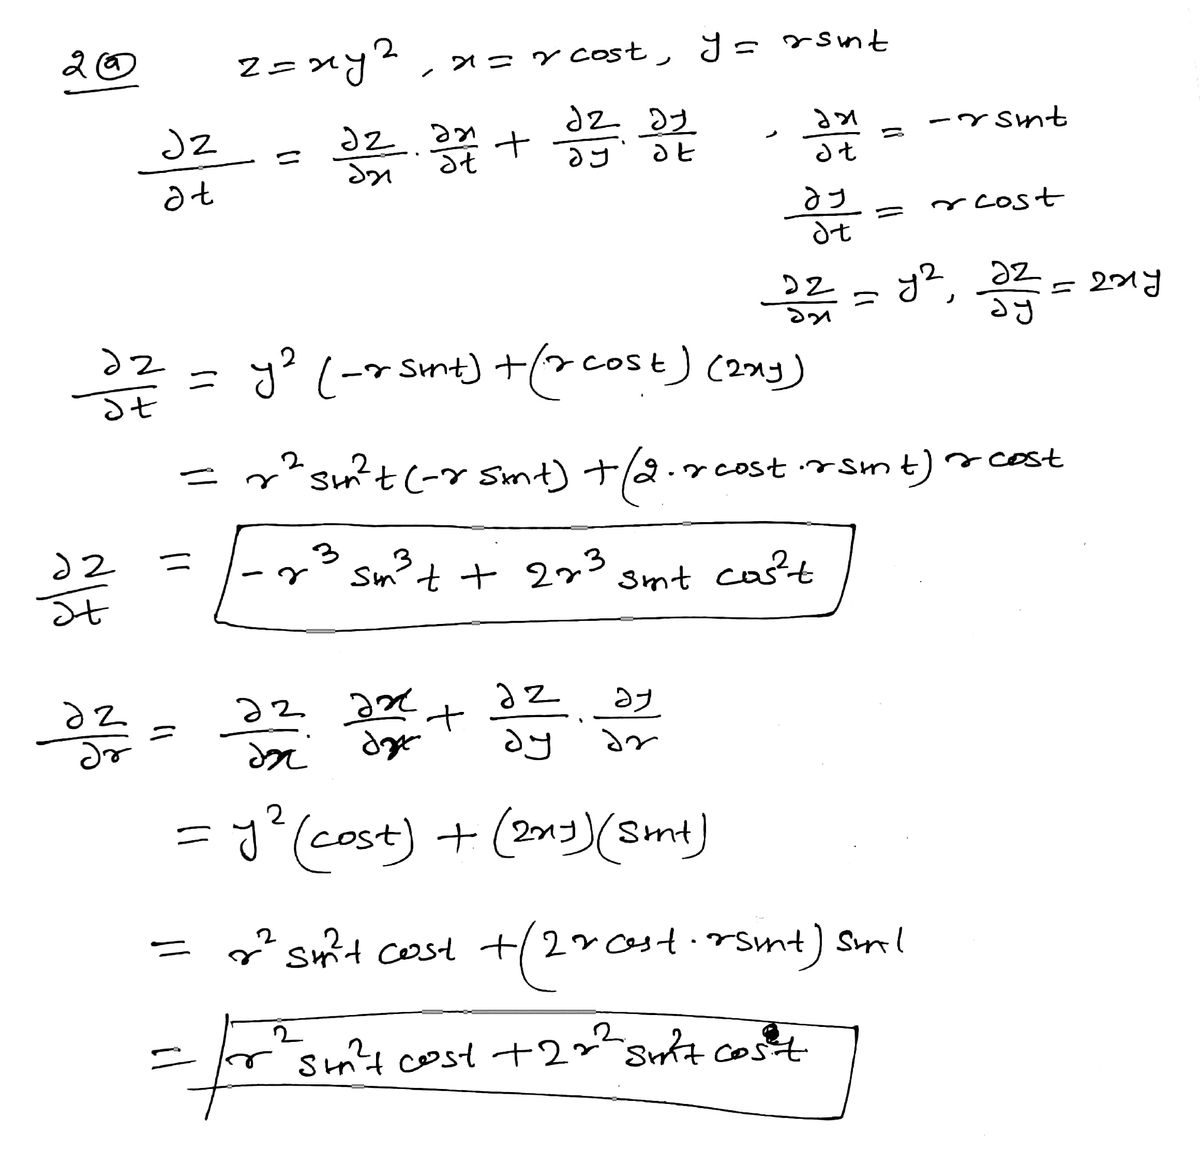 2ⓐ z = xy², x = r cost, y = r sint
∂z/∂t = ∂z/∂x · ∂x/∂t + ∂z/∂y · ∂y/∂t , ∂x/∂t = -r sint
∂y/∂t = r cost
∂z/∂x = y², ∂z/∂y = 2xy
∂z/∂t = y² (-r sint) + (r cost) (2xy)
= r² sin²t (-r sint) + (2·r cost·r sint) r cost
∂z/∂t = -r³ sin³t + 2r³ sint cos²t
∂z/∂r = ∂z/∂x · ∂x/∂r + ∂z/∂y · ∂y/∂r
= y² (cost) + (2xy)(sint)
= r² sin²t cost + (2r cost · r sint) sint
= r² sin²t cost + 2r² sin²t cost